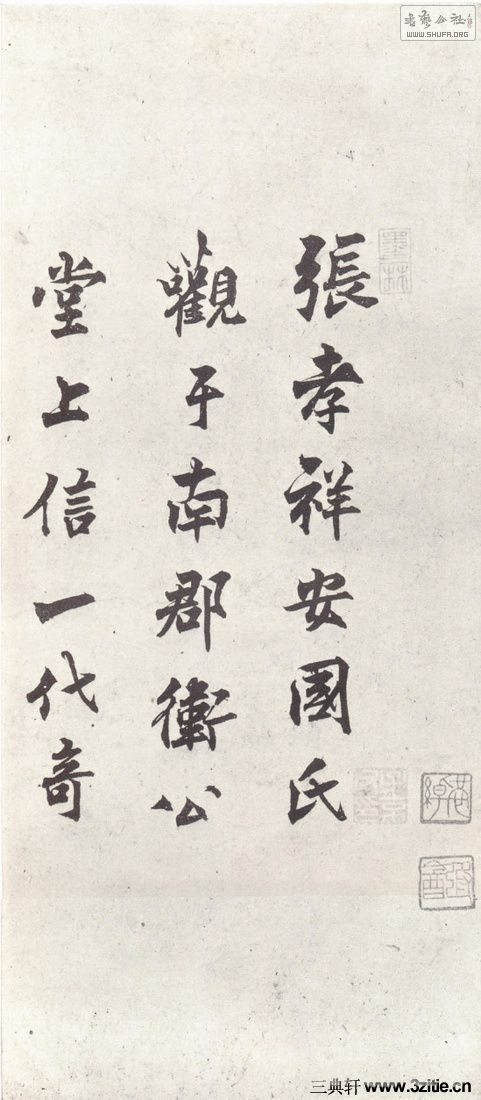 張孝祥安國氏
觀于南郡衛公
堂上信一代奇
墨林
書藝公社
WWW.SHUFA.ORG
三典轩 www.3zitie.cn